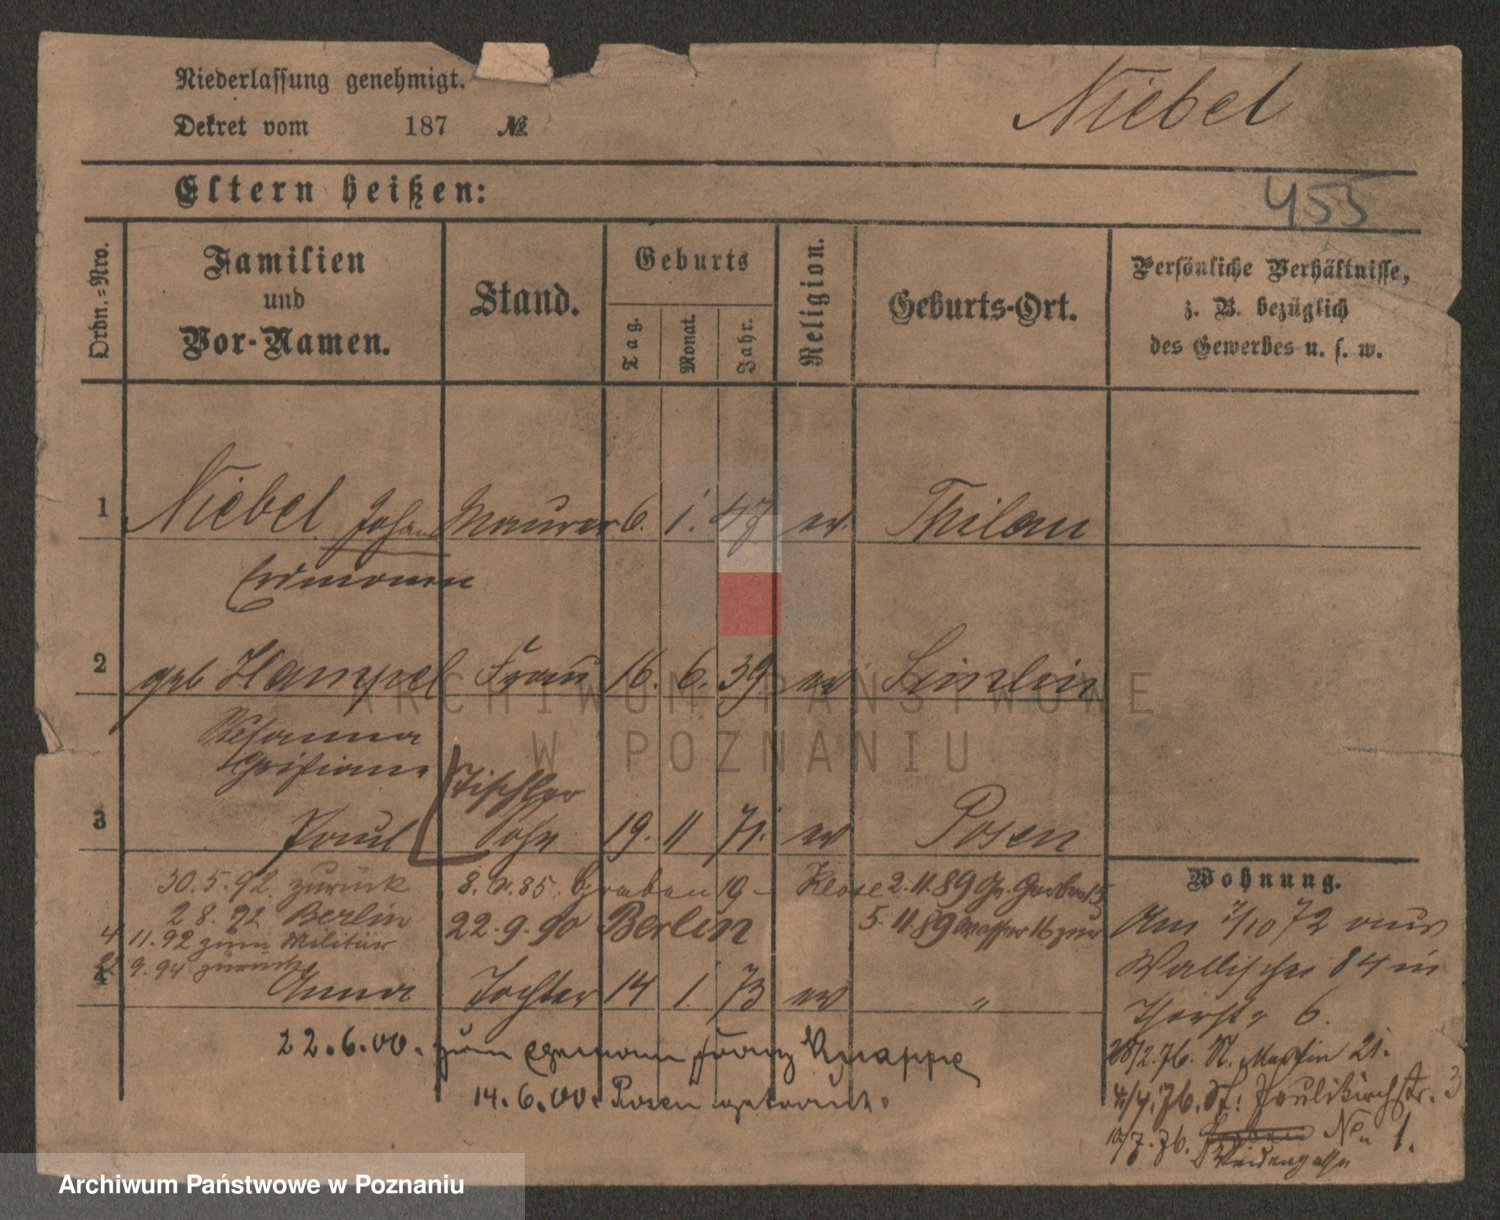 Niederlassung genehmigt.
Dekret vom 187 №
Niebel
Eltern heißen:
455
Ordn.=Nro.
Familien
und
Vor-Namen.
Stand.
Geburts
Tag.
Monat.
Jahr.
Religion.
Geburts-Ort.
Persönliche Verhältnisse,
z. B. bezüglich
des Gewerbes u. s. w.
1 Niebel Johann Maurer 6. 1. 47 ev. Thilau
Erdmann
2 geb Hampel Frau 16. 6. 39 ev
ARCHIWUM PAŃSTWOWE
W POZNANIU
Rosanna
Tischler
3 Paul Sohn 19. 11 71. ev Posen
30.5.92 zurück 8. 85. Graben 19 - Klose 2.11.89 Gr. Gerberstr
28.92 Berlin 22.9.90 Berlin 5.11.89
4 11.92 zum Militär
9.94 zurück
4 Anna Tochter 14 1. 73 ev "
22.6.00. zum Ehemann Franz Knappe
14.6.00. Posen getraut.
Wohnung.
Am 7/10 72 aus
Wallischei 84 in
Thorstr 6.
28/2.76. St. Martin 21.
4/4.76. St: Paulikirchstr. 3
10/7.76. No 1.
Weidengasse
Archiwum Państwowe w Poznaniu